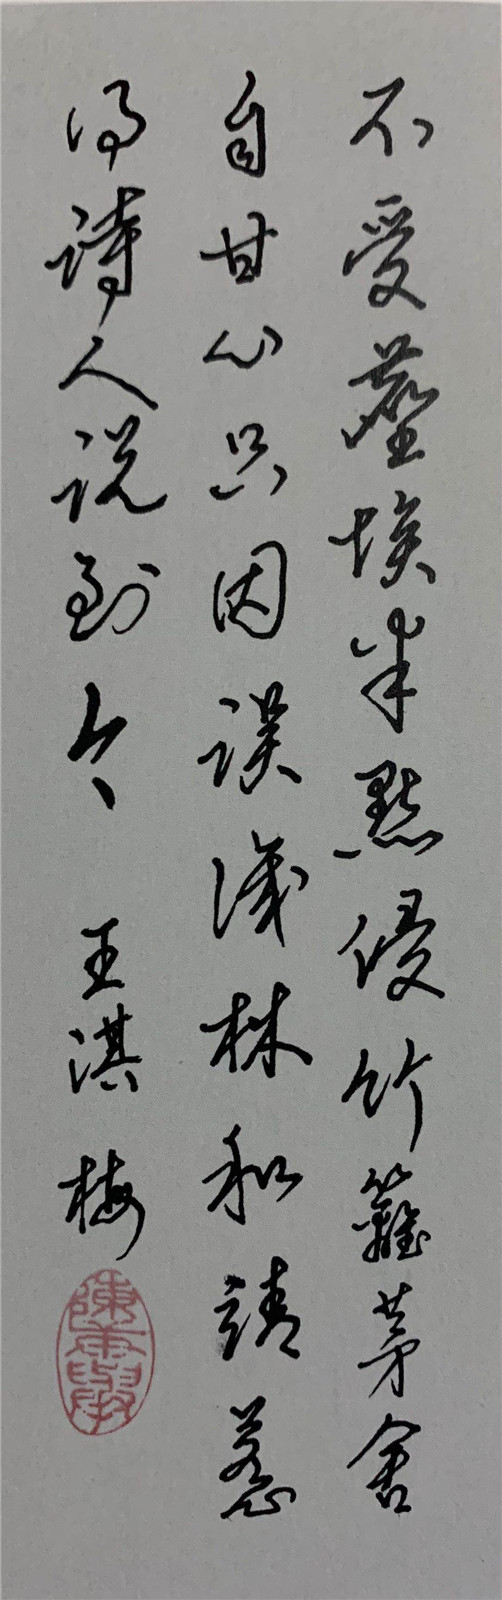 不受塵埃半點侵竹籬茅舍
自甘心只因誤識林和靖惹
得詩人說到今 王淇 梅
陳